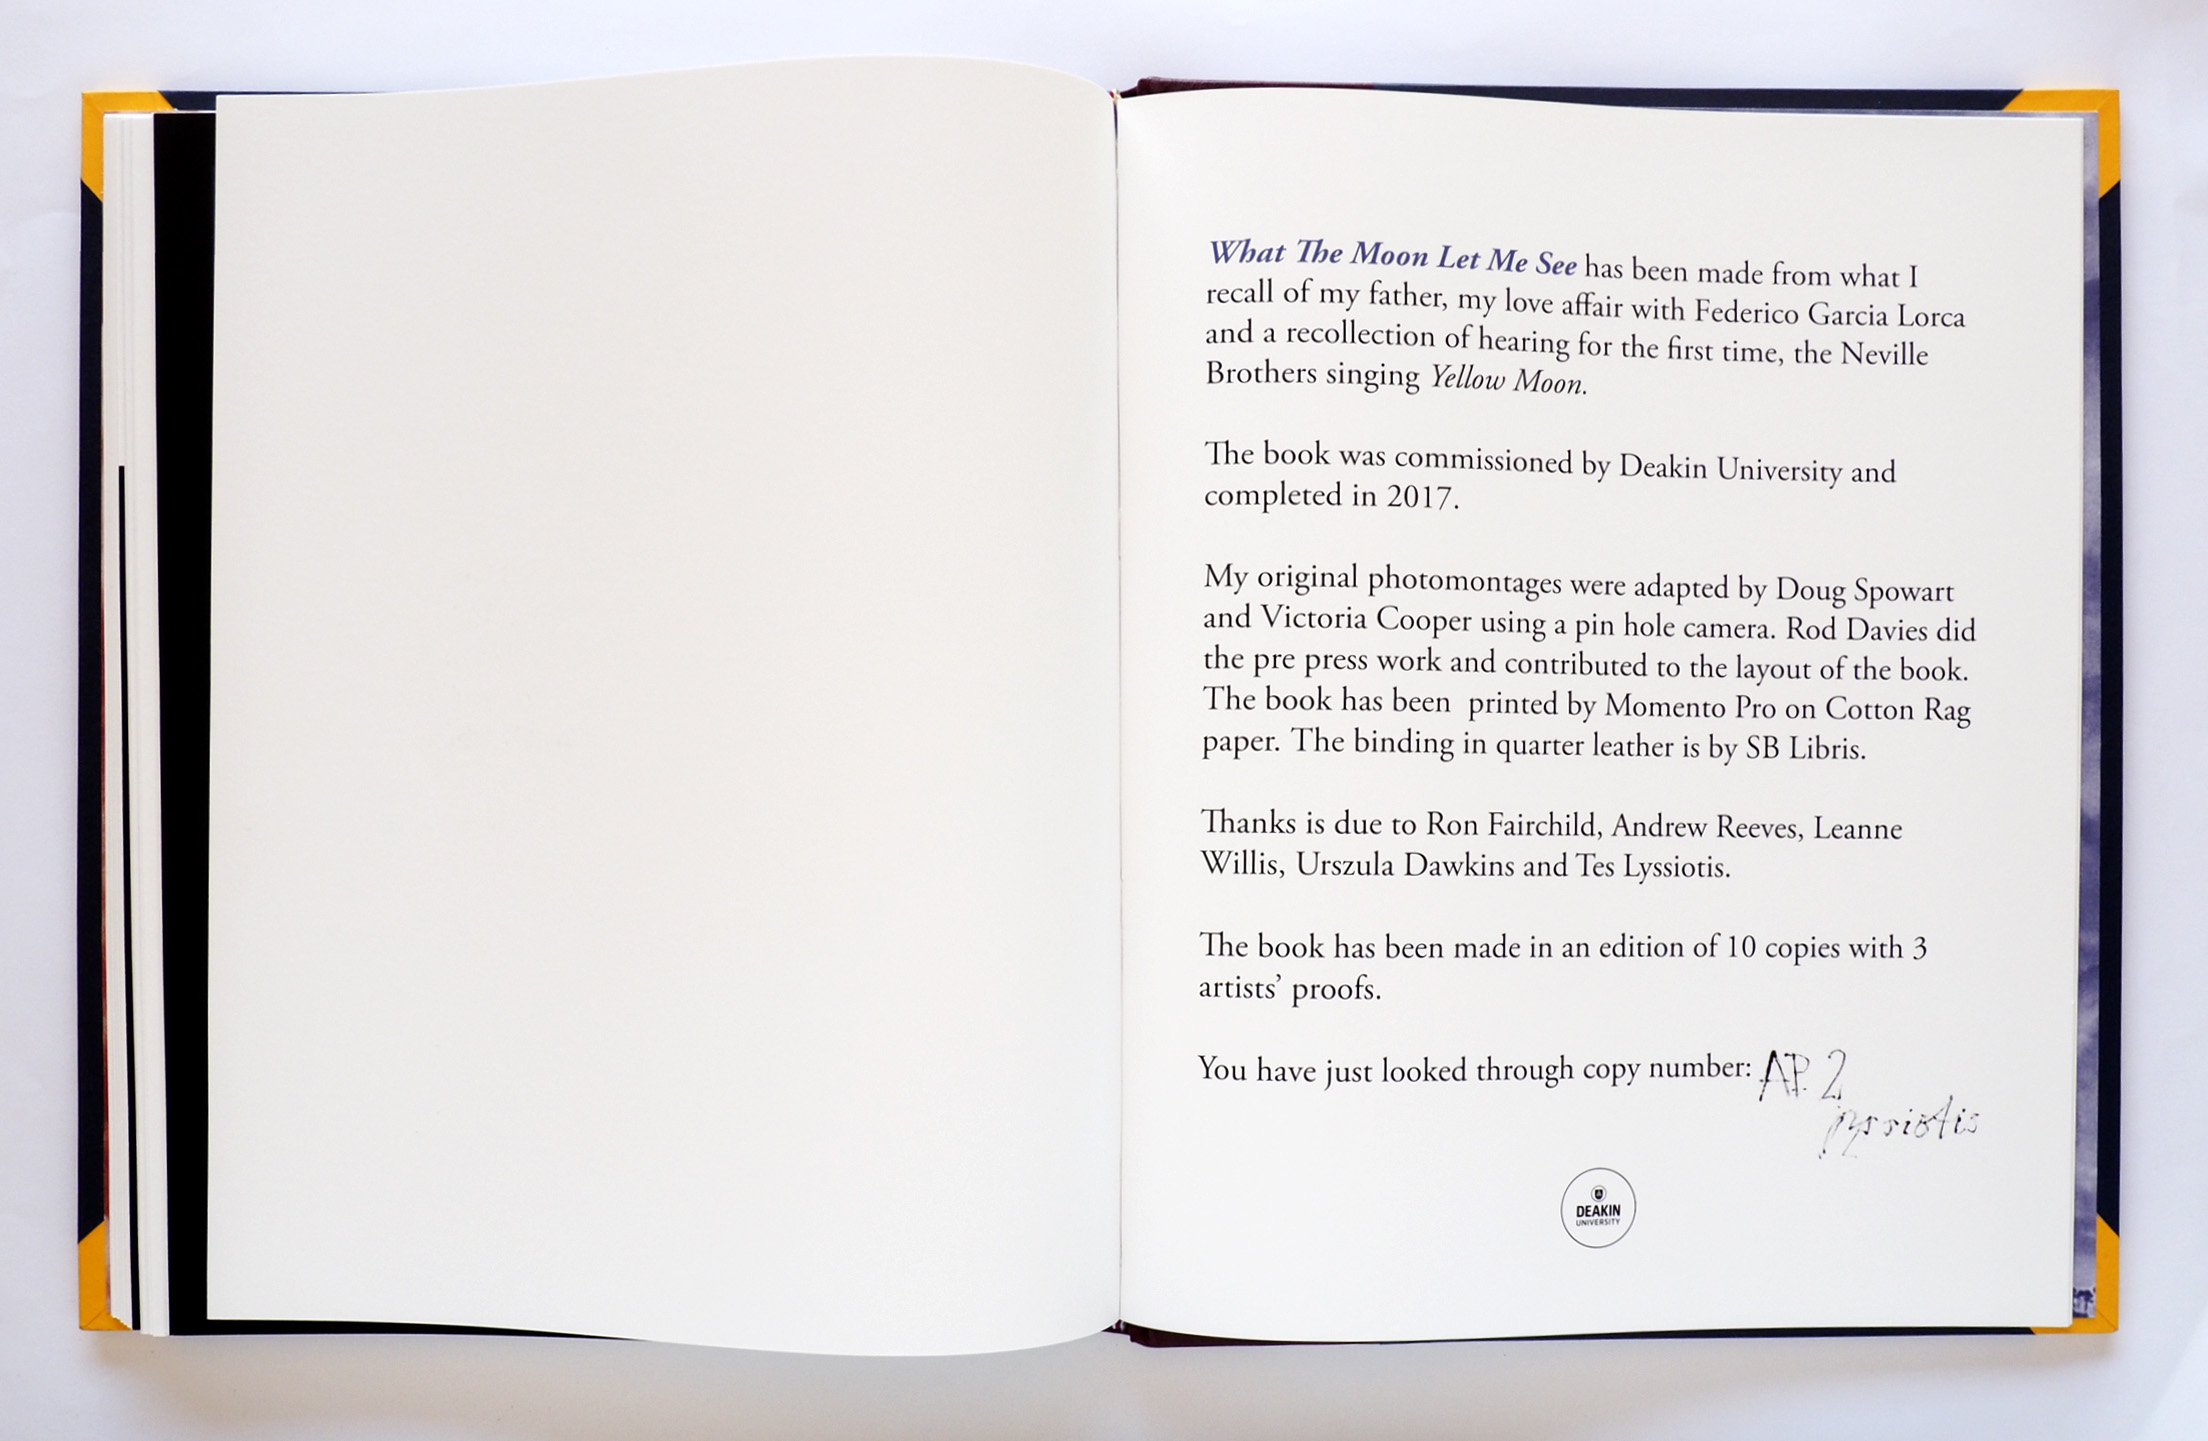 What The Moon Let Me See has been made from what I
recall of my father, my love affair with Federico Garcia Lorca
and a recollection of hearing for the first time, the Neville
Brothers singing Yellow Moon.
The book was commissioned by Deakin University and
completed in 2017.
My original photomontages were adapted by Doug Spowart
and Victoria Cooper using a pin hole camera. Rod Davies did
the pre press work and contributed to the layout of the book.
The book has been printed by Momento Pro on Cotton Rag
paper. The binding in quarter leather is by SB Libris.
Thanks is due to Ron Fairchild, Andrew Reeves, Leanne
Willis, Urszula Dawkins and Tes Lyssiotis.
The book has been made in an edition of 10 copies with 3
artists’ proofs.
You have just looked through copy number: AP. 2
DEAKIN
UNIVERSITY